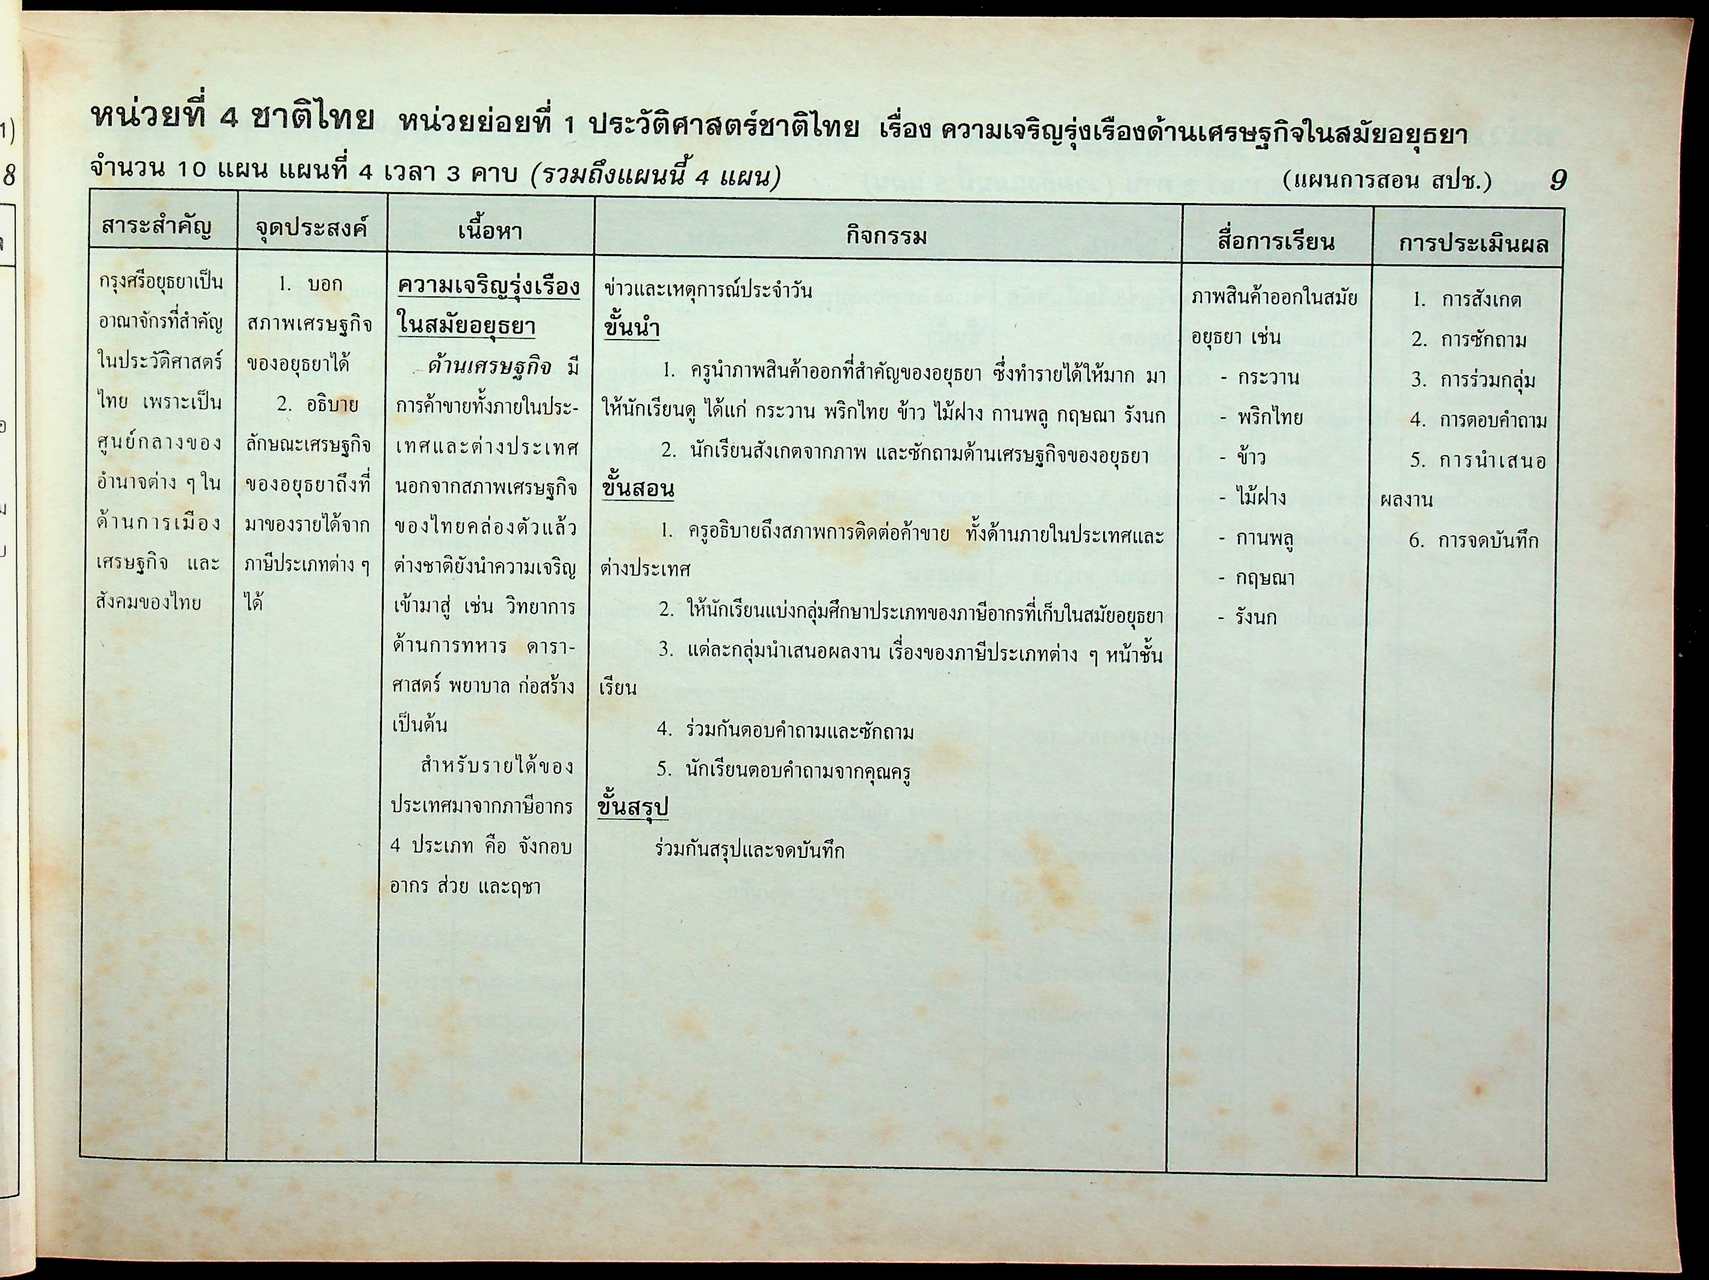 หน่วยที่ 4 ชาติไทย หน่วยย่อยที่ 1 ประวัติศาสตร์ชาติไทย เรื่อง ความเจริญรุ่งเรืองด้านเศรษฐกิจในสมัยอยุธยา
จำนวน 10 แผน แผนที่ 4 เวลา 3 คาบ (รวมถึงแผนนี้ 4 แผน)
(แผนการสอน สปช.) 9
สาระสำคัญ
กรุงศรีอยุธยาเป็น
อาณาจักรที่สำคัญ
ในประวัติศาสตร์
ไทย เพราะเป็น
ศูนย์กลางของ
อำนาจต่าง ๆ ใน
ด้านการเมือง
เศรษฐกิจ และ
สังคมของไทย
จุดประสงค์
1. บอก
สภาพเศรษฐกิจ
ของอยุธยาได้
2. อธิบาย
ลักษณะเศรษฐกิจ
ของอยุธยาถึงที่
มาของรายได้จาก
ภาษีประเภทต่าง ๆ
ได้
เนื้อหา
ความเจริญรุ่งเรือง
ในสมัยอยุธยา
ด้านเศรษฐกิจ มี
การค้าขายทั้งภายในประ-
เทศและต่างประเทศ
นอกจากสภาพเศรษฐกิจ
ของไทยคล่องตัวแล้ว
ต่างชาติยังนำความเจริญ
เข้ามาสู่ เช่น วิทยาการ
ด้านการทหาร ดารา-
ศาสตร์ พยาบาล ก่อสร้าง
เป็นต้น
สำหรับรายได้ของ
ประเทศมาจากภาษีอากร
4 ประเภท คือ จังกอบ
อากร ส่วย และฤชา
กิจกรรม
ข่าวและเหตุการณ์ประจำวัน
ขั้นนำ
1. ครูนำภาพสินค้าออกที่สำคัญของอยุธยา ซึ่งทำรายได้ให้มาก มา
ให้นักเรียนดู ได้แก่ กระวาน พริกไทย ข้าว ไม้ฝาง กานพลู กฤษณา รังนก
2. นักเรียนสังเกตจากภาพ และซักถามด้านเศรษฐกิจของอยุธยา
ขั้นสอน
1. ครูอธิบายถึงสภาพการติดต่อค้าขาย ทั้งด้านภายในประเทศและ
ต่างประเทศ
2. ให้นักเรียนแบ่งกลุ่มศึกษาประเภทของภาษีอากรที่เก็บในสมัยอยุธยา
3. แต่ละกลุ่มนำเสนอผลงาน เรื่องของภาษีประเภทต่าง ๆ หน้าชั้น
เรียน
4. ร่วมกันตอบคำถามและซักถาม
5. นักเรียนตอบคำถามจากคุณครู
ขั้นสรุป
ร่วมกันสรุปและจดบันทึก
สื่อการเรียน
ภาพสินค้าออกในสมัย
อยุธยา เช่น
- กระวาน
- พริกไทย
- ข้าว
- ไม้ฝาง
- กานพลู
- กฤษณา
- รังนก
การประเมินผล
1. การสังเกต
2. การซักถาม
3. การร่วมกลุ่ม
4. การตอบคำถาม
5. การนำเสนอ
ผลงาน
6. การจดบันทึก